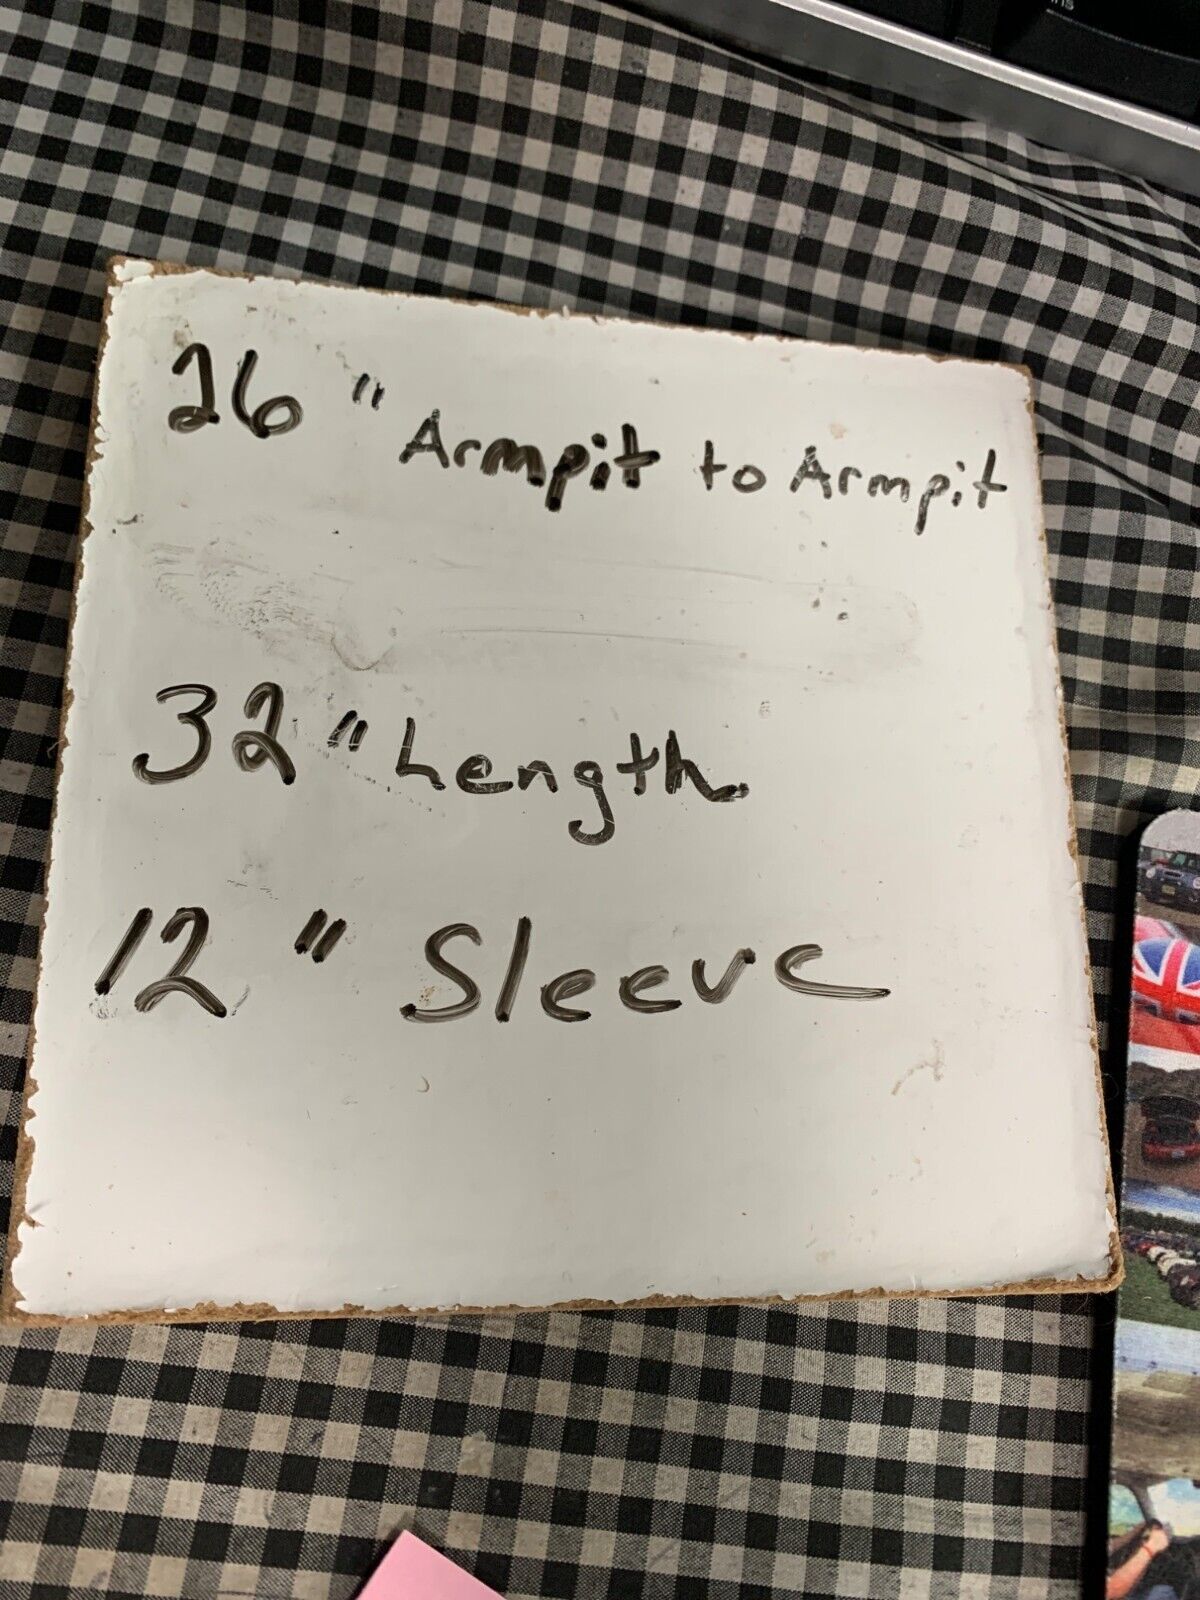 26 " Armpit to Armpit
32 " Length
12 " Sleeve